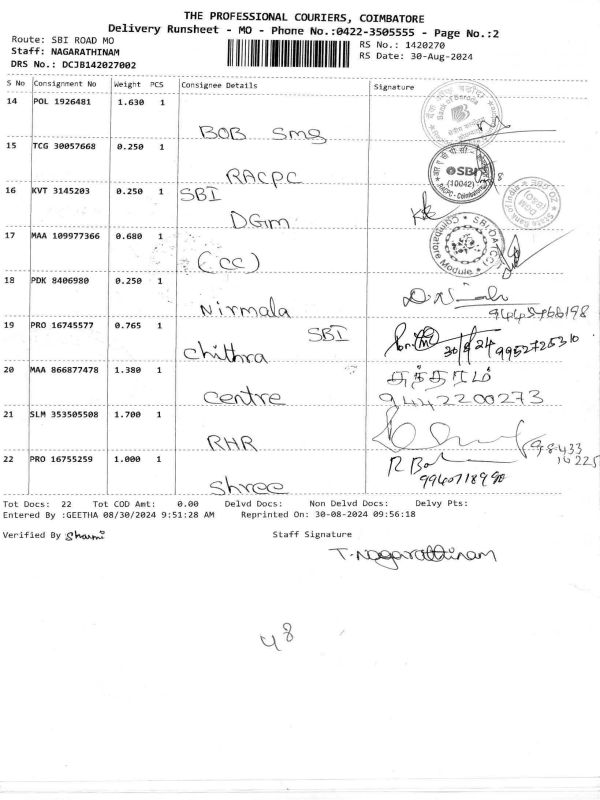 THE PROFESSIONAL COURIERS, COIMBATORE
Delivery Runsheet - MO - Phone No.:0422-3505555 - Page No.:2
Route: SBI ROAD MO
Staff: NAGARATHINAM
DRS No.: DCJB142027002
RS No.: 1420270
RS Date: 30-Aug-2024
S No Consignment No Weight PCS Consignee Details Signature
14 POL 1926481 1.630 1
BOB Smg
Bank of Baroda
15 TCG 30057668 0.250 1
RACPC
SBI
(10042)
RACPC - Coimbatore
16 KVT 3145203 0.250 1 SBI
DGm
17 MAA 109977366 0.680 1
(CC)
Coimbatore Module
18 PDK 8406980 0.250 1
Nirmala
19 PRO 16745577 0.765 1 SBI
Chithra
30/8/24 9952725310
20 MAA 866877478 1.380 1
Centre
9442200273
21 SLM 353505508 1.700 1
RHR
22 PRO 16755259 1.000 1
Shree
Tot Docs: 22 Tot COD Amt: 0.00 Delvd Docs: Non Delvd Docs: Delvy Pts:
Entered By :GEETHA 08/30/2024 9:51:28 AM Reprinted On: 30-08-2024 09:56:18
Verified By Sharmi Staff Signature
T. Nagarathinam
48